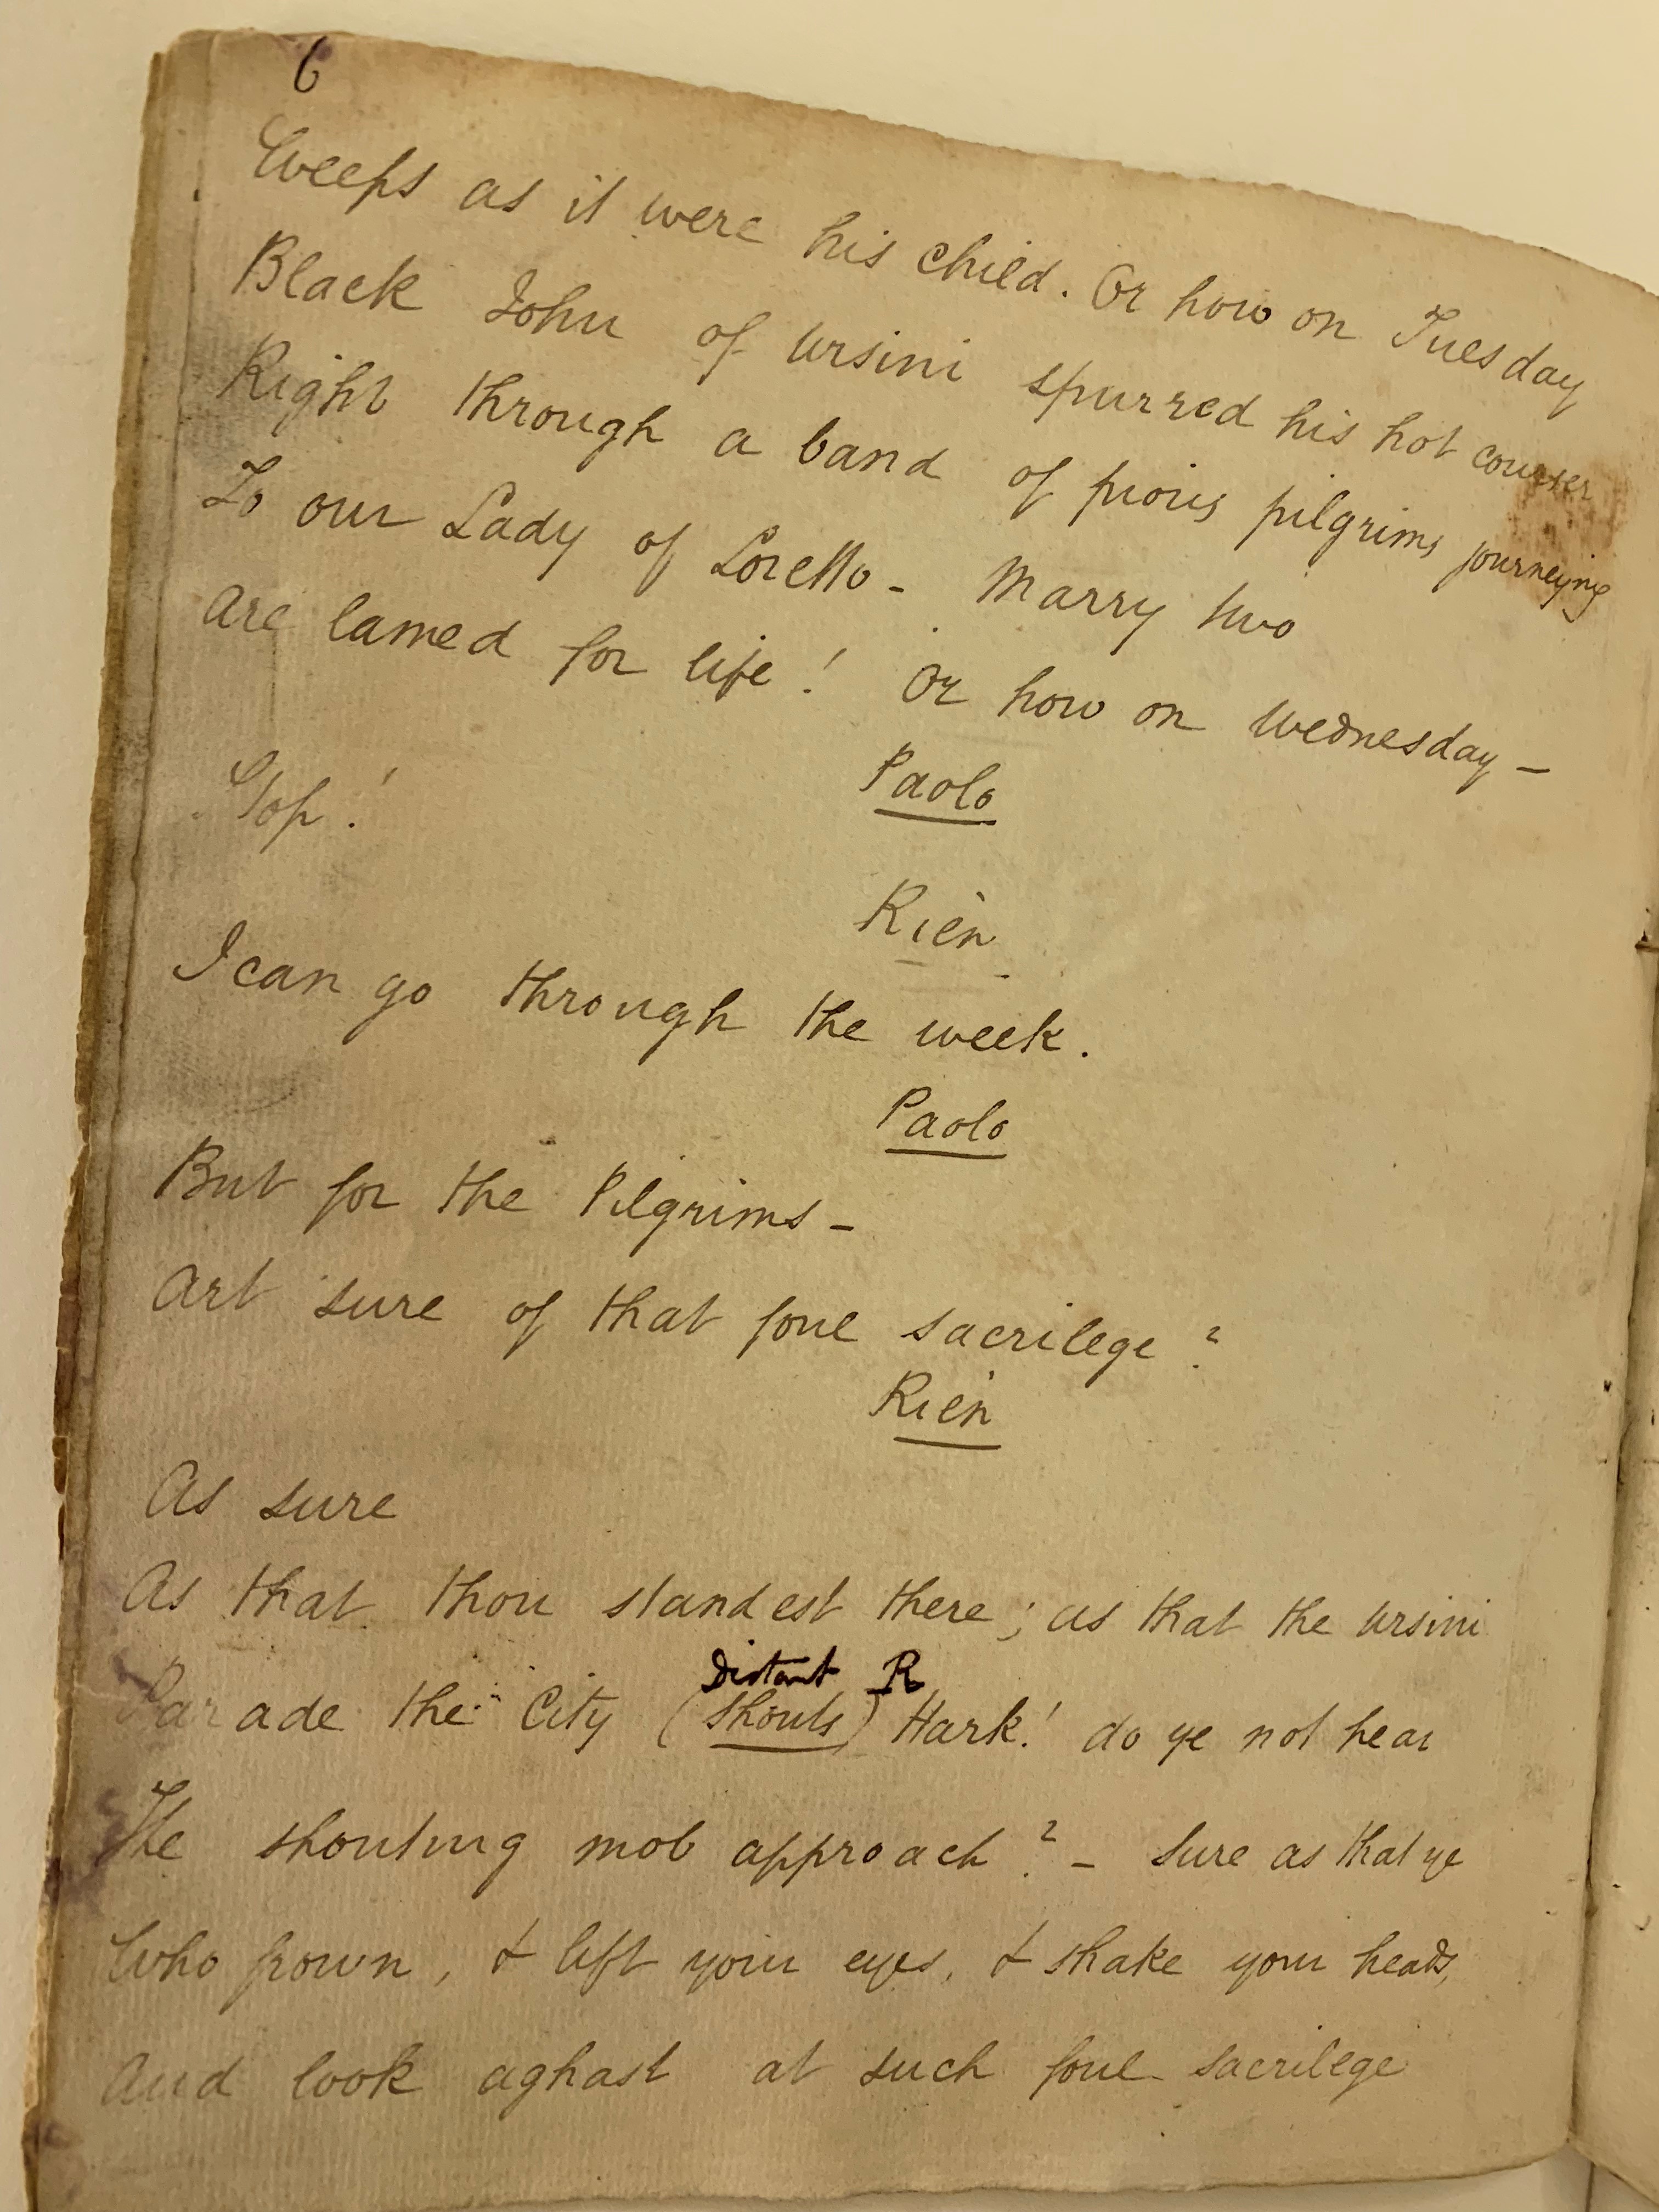 6
Weeps as it were his child. Or how on Tuesday
Black John of Ursini spurred his hot courser
Right through a band of pious pilgrims journeying
To our Lady of Loretto - Marry two
Are lamed for life! Or how on Wednesday -
Paolo
Stop!
Rien
I can go through the week.
Paolo
But for the Pilgrims -
Art sure of that foul sacrilege?
Rien
As sure
As that thou standest there; as that the Ursini
Distant R
Parade the City (Shouts) Hark! do ye not hear
The shouting mob approach? - Sure as that ye
Who frown, & lift your eyes, & shake your heads,
And look aghast at such foul sacrilege